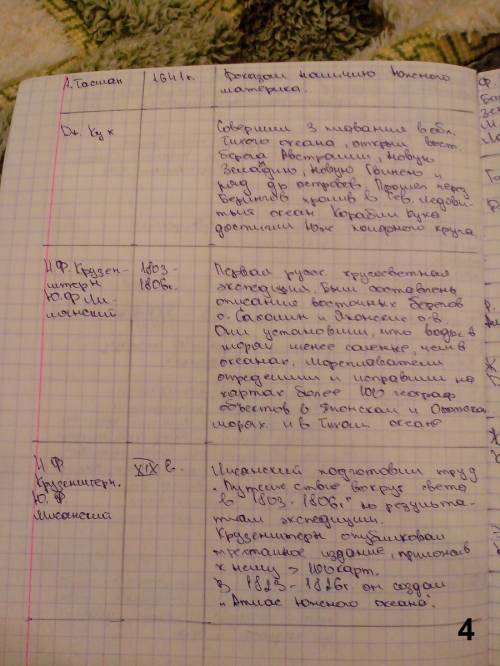 А. Тасман 1641г. Доказал наличию Южного
материка.
Дж. Кук Совершил 3 плавания в обл.
Тихого океана, открыл вост.
берега Австралии, Новую
Зеландию, Новую Гвинею и
ряд др островов. Прошел через
Берингов пролив в Сев. Ледови-
тый океан. Корабли Кука
достигли Южн полярного круга
И.Ф. Крузен- 1803- Первая русск. кругосветная
штерн 1806г. экспедиция. Были составлены
Ю.Ф Ли- описание восточных берегов
сянский о. Сахалин и Японские о-в
Они установили, что воды в
морях менее соленые, чем в
океанах, мореплаватели
определили и исправили на
картах более 100 географ
объектов в Японском и Охотском
морях и в Тихом океане
И Ф XIX в. Лисанский подготовил труд
Крузенштерн. "Путешествие вокруг света
Ю. Ф в 1803-1806г" по результа-
Лисанский там экспедиции.
Крузенштерн опубликовал
трехтомное издание, приложив
к нему > 100 карт.
В 1823-1826г он создал
"Атлас Южного океана".
4